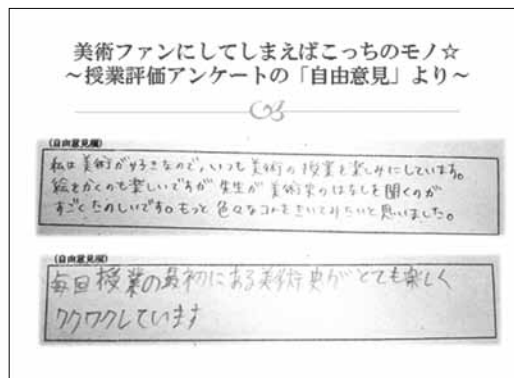 美術ファンにしてしまえばこっちのモノ☆
～授業評価アンケートの「自由意見」より～
(自由意見欄)
私は美術が好きなので、いつも美術の授業を楽しみにしています。
絵をかくのも楽しいですが 先生が 美術史のはなしを聞くのが
すごくたのしいです。もっと 色々なコトをきいてみたいと思いました。
(自由意見欄)
毎回 授業の最初にある美術史がとても楽しく
ワクワクしています